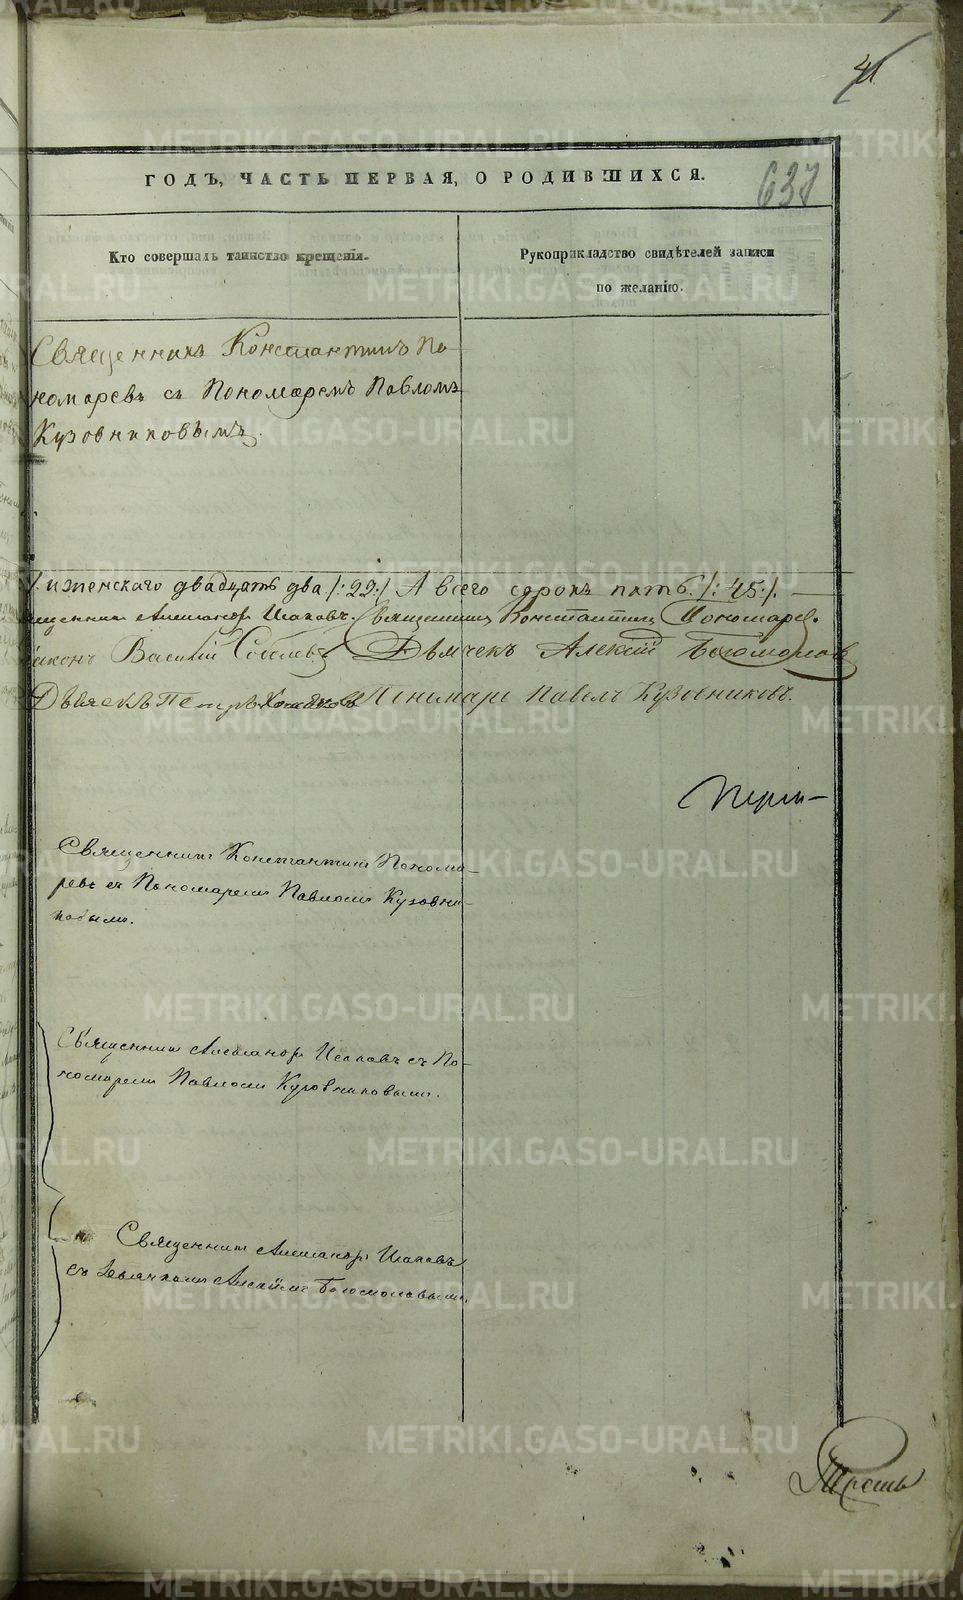 41
ГОДЪ, ЧАСТЬ ПЕРВАЯ, О РОДИВШИХСЯ.
637
Кто совершалъ таинство крещенія.
Рукоприкладство свидѣтелей записи
по желанію.
Священникъ Константинъ По
номаревъ съ Пономаремъ Павломъ
Кузовниковымъ.
и женскаго двадцать два /:22:/ А всего сорокъ пять /:45:/.
щенникъ Александръ Исаковъ. Священникъ Константинъ Пономарев.
іаконъ Василій Соболевъ Дьячекъ Алексій Богомолов
Дьячекъ Петръ Хомяковъ Пономарь Павелъ Кузовниковъ.
Священникъ Константинъ Понома-
ревъ съ Пономаремъ Павломъ Кузовни-
ковымъ.
Священникъ Александръ Исаковъ съ По-
номаремъ Павломъ Кузовниковымъ.
Священникъ Александръ Исаковъ
съ Дьячкомъ Алексіемъ Богомоловымъ.
METRIKI.GASO-URAL.RU